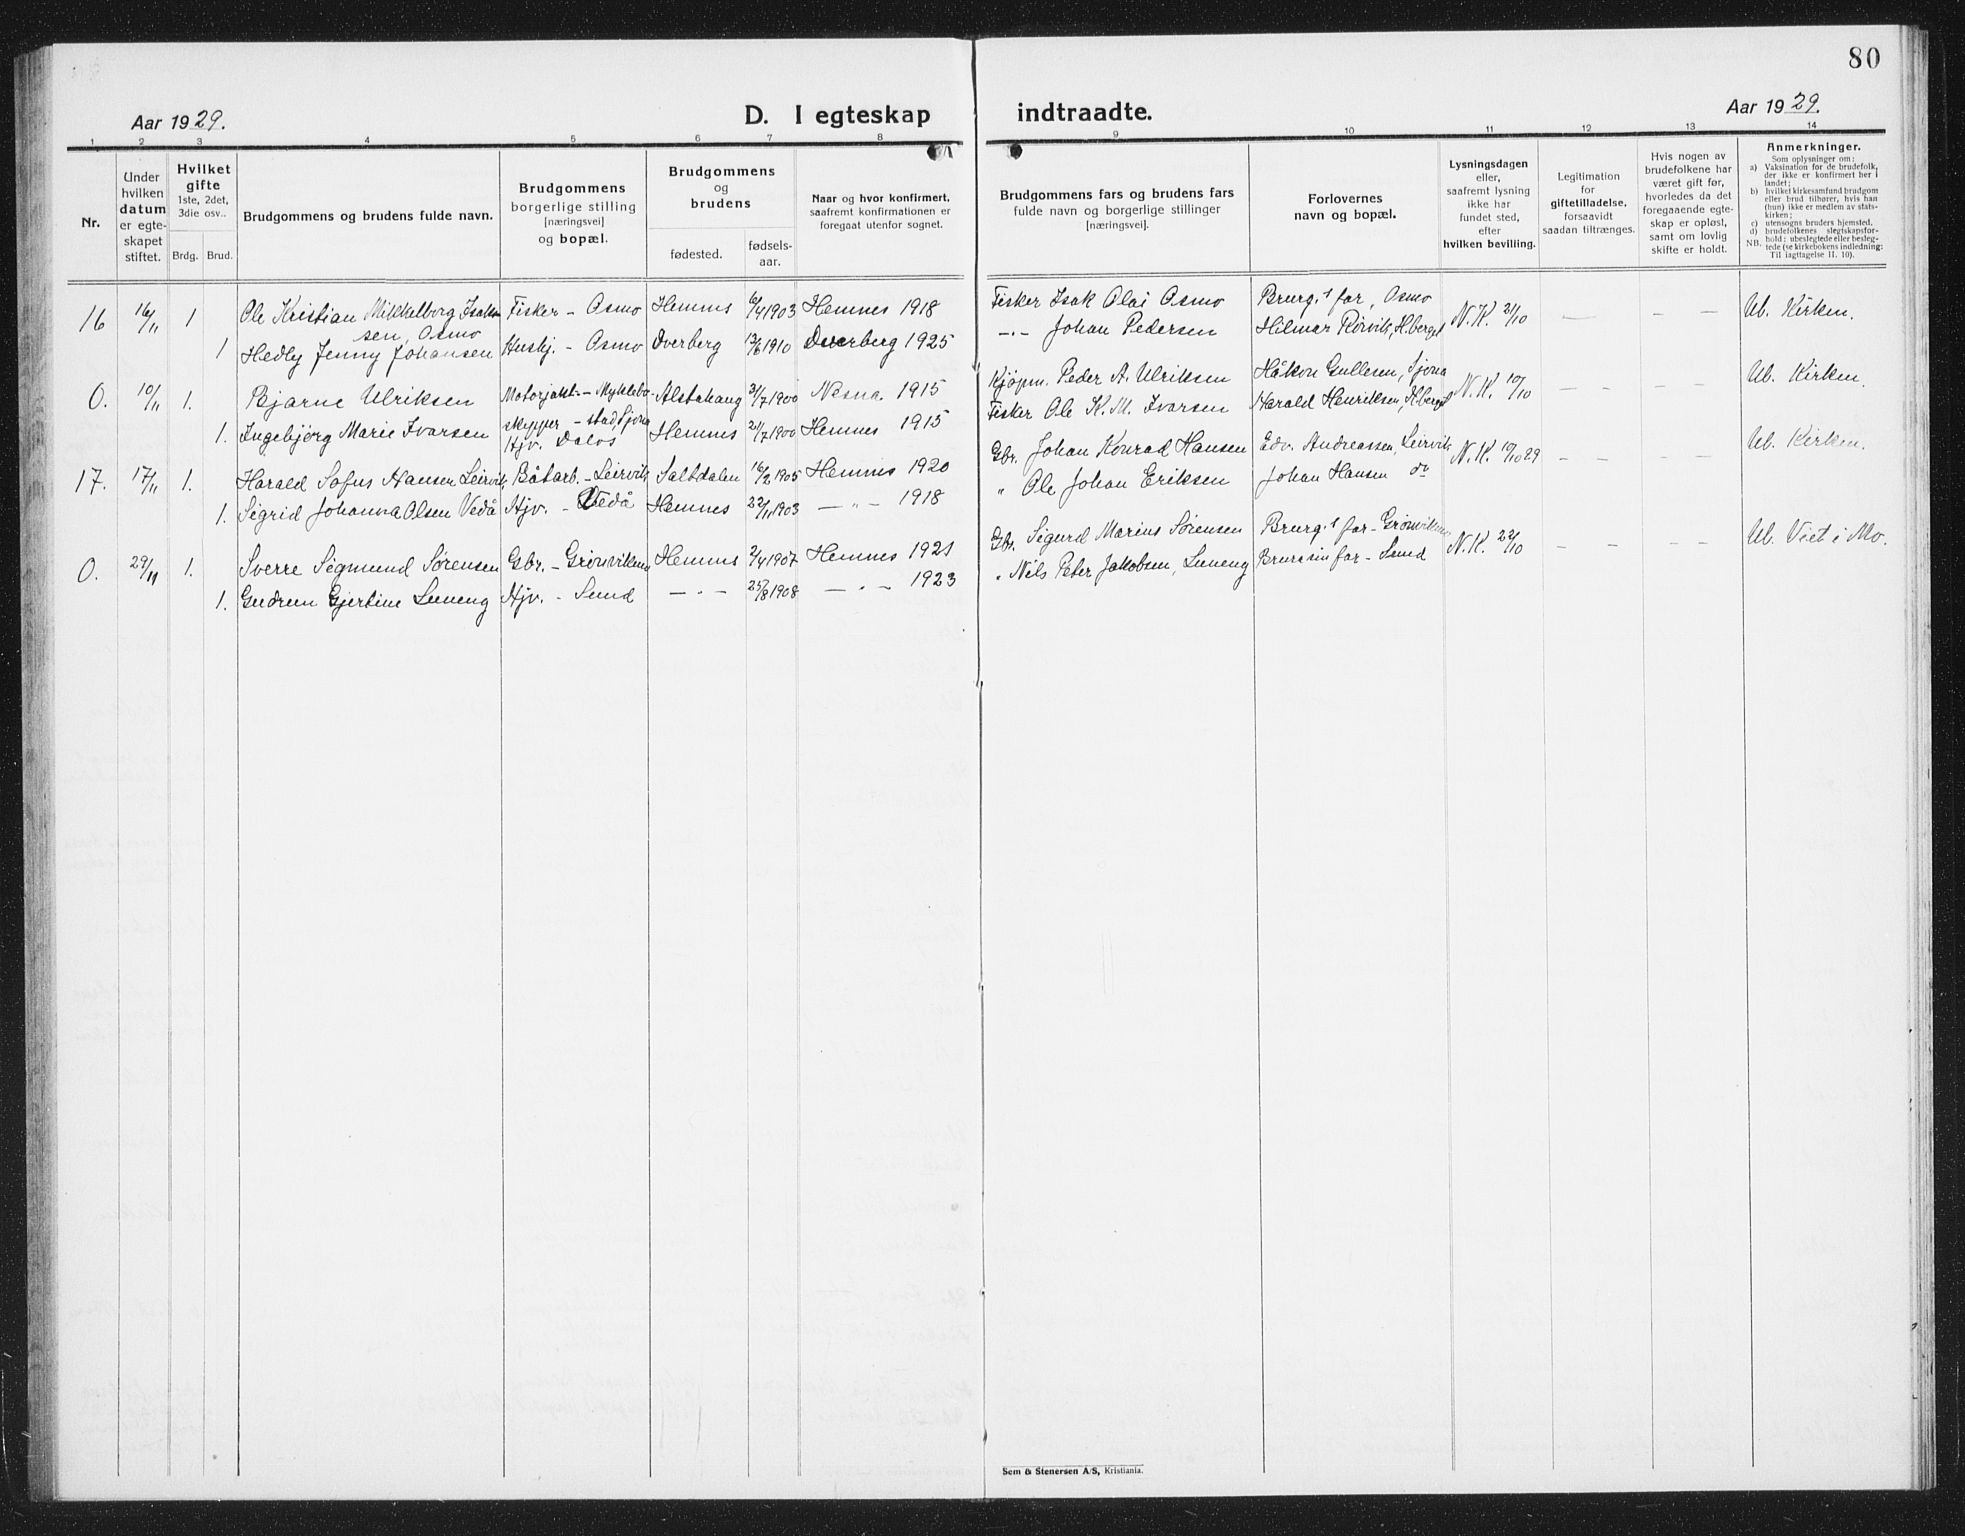 80
Aar 1929.
D. I egteskap indtraadte.
Aar 1929.
1 2 3 4 5 6 7 8 9 10 11 12 13 14
Nr.
Under
hvilken
datum
er egte-
skapet
stiftet.
Hvilket
gifte
1ste, 2det,
3die osv..
Brdg. Brud.
Brudgommens og brudens fulde navn.
Brudgommens
borgerlige stilling
[næringsvei]
og bopæl.
Brudgommens
og
brudens
fødested.
fødsels-
aar.
Naar og hvor konfirmert,
saafremt konfirmationen er
foregaat utenfor sognet.
Brudgommens fars og brudens fars
fulde navn og borgerlige stillinger
[næringsvei].
Forlovernes
navn og bopæl.
Lysningsdagen
eller,
saafremt lysning
ikke har
fundet sted,
efter
hvilken bevilling.
Legitimation
for
giftetilladelse,
forsaavidt
saadan tiltrænges.
Hvis nogen av
brudefolkene har
været gift før,
hvorledes da det
foregaaende egte-
skap er opløst,
samt om lovlig
skifte er holdt.
Anmerkninger.
Som oplysninger om:
a) Vaksination for de brudefolk,
der ikke er konfirmert her i
landet;
b) hvilket kirkesamfund brudgom
eller brud tilhører, hvis han
(hun) ikke er medlem av stats-
kirken;
c) utensogns bruders hjemsted.
d) brudefolkenes slegtskapsfor-
hold: ubeslegtede eller besleg-
NB. tede (se kirkebokens indledning:
Til iagttagelse II. 10).
16 16/11 1 Ole Kristian Mikkelborg Isak-
sen, Osmo Fisker - Osmo Hemnes 6/4 1903 Hemnes 1918 Fisker Isak Olai Osmo Brurg.s far, Osmo N.K. 21/10 — — — Ub. Kirken.
1 Hedly Jenny Johansen Hushj. - Osmo Dverberg 12/6 1910 Dverberg 1925 -"- Johan Pedersen Hilmar Rörvik, H.berget
0. 10/11 1. Bjarne Ulriksen Motorjakt- - Myklebo-
skypper - stad, Sjona Alstahaug 31/7 1900 Nesna. 1915 Kjöpm. Peder A. Ulriksen Håkon Gullesen, Sjona N.K. 10/10 — — — Ub. Kirken.
1. Ingebjörg Marie Ivarsen Hjv. Dalos Hemnes 21/7 1900 Hemnes 1915 Fisker Ole K. M. Ivarsen Harald Henriksen, H.berget
17. 17/11 1. Harald Sofus Hansen Leirvik Båtarb. - Leirvik Saltdalen 16/2 1905 Hemnes 1920 Gbr. Johan Konrad Hansen Edv. Andreassen, Leirvik N.K. 10/10 29 — — — Ub. Kirken.
1. Sigrid Johanna Olsen Vedå Hjv. - Vedå Hemnes 22/11 1903 — " — 1918 " Ole Johan Eriksen Johan Hansen do
0. 29/11 1. Sverre Sigmund Sörensen Gbr. - Grönvikmo Hemnes 2/4 1907 Hemnes 1921 Gbr. Sigurd Marius Sörensen Brurg.s far - Grönvikmo N.K. 22/10 — — — Ub. Viet i Mo.
1. Gudrun Gjertine Luneng Hjv. - Sund — " — 25/8 1908 — " — 1923 " Nils Peter Jakobsen, Luneng Brurasin far - Sund
Sem & Stenersen A/S, Kristiania.